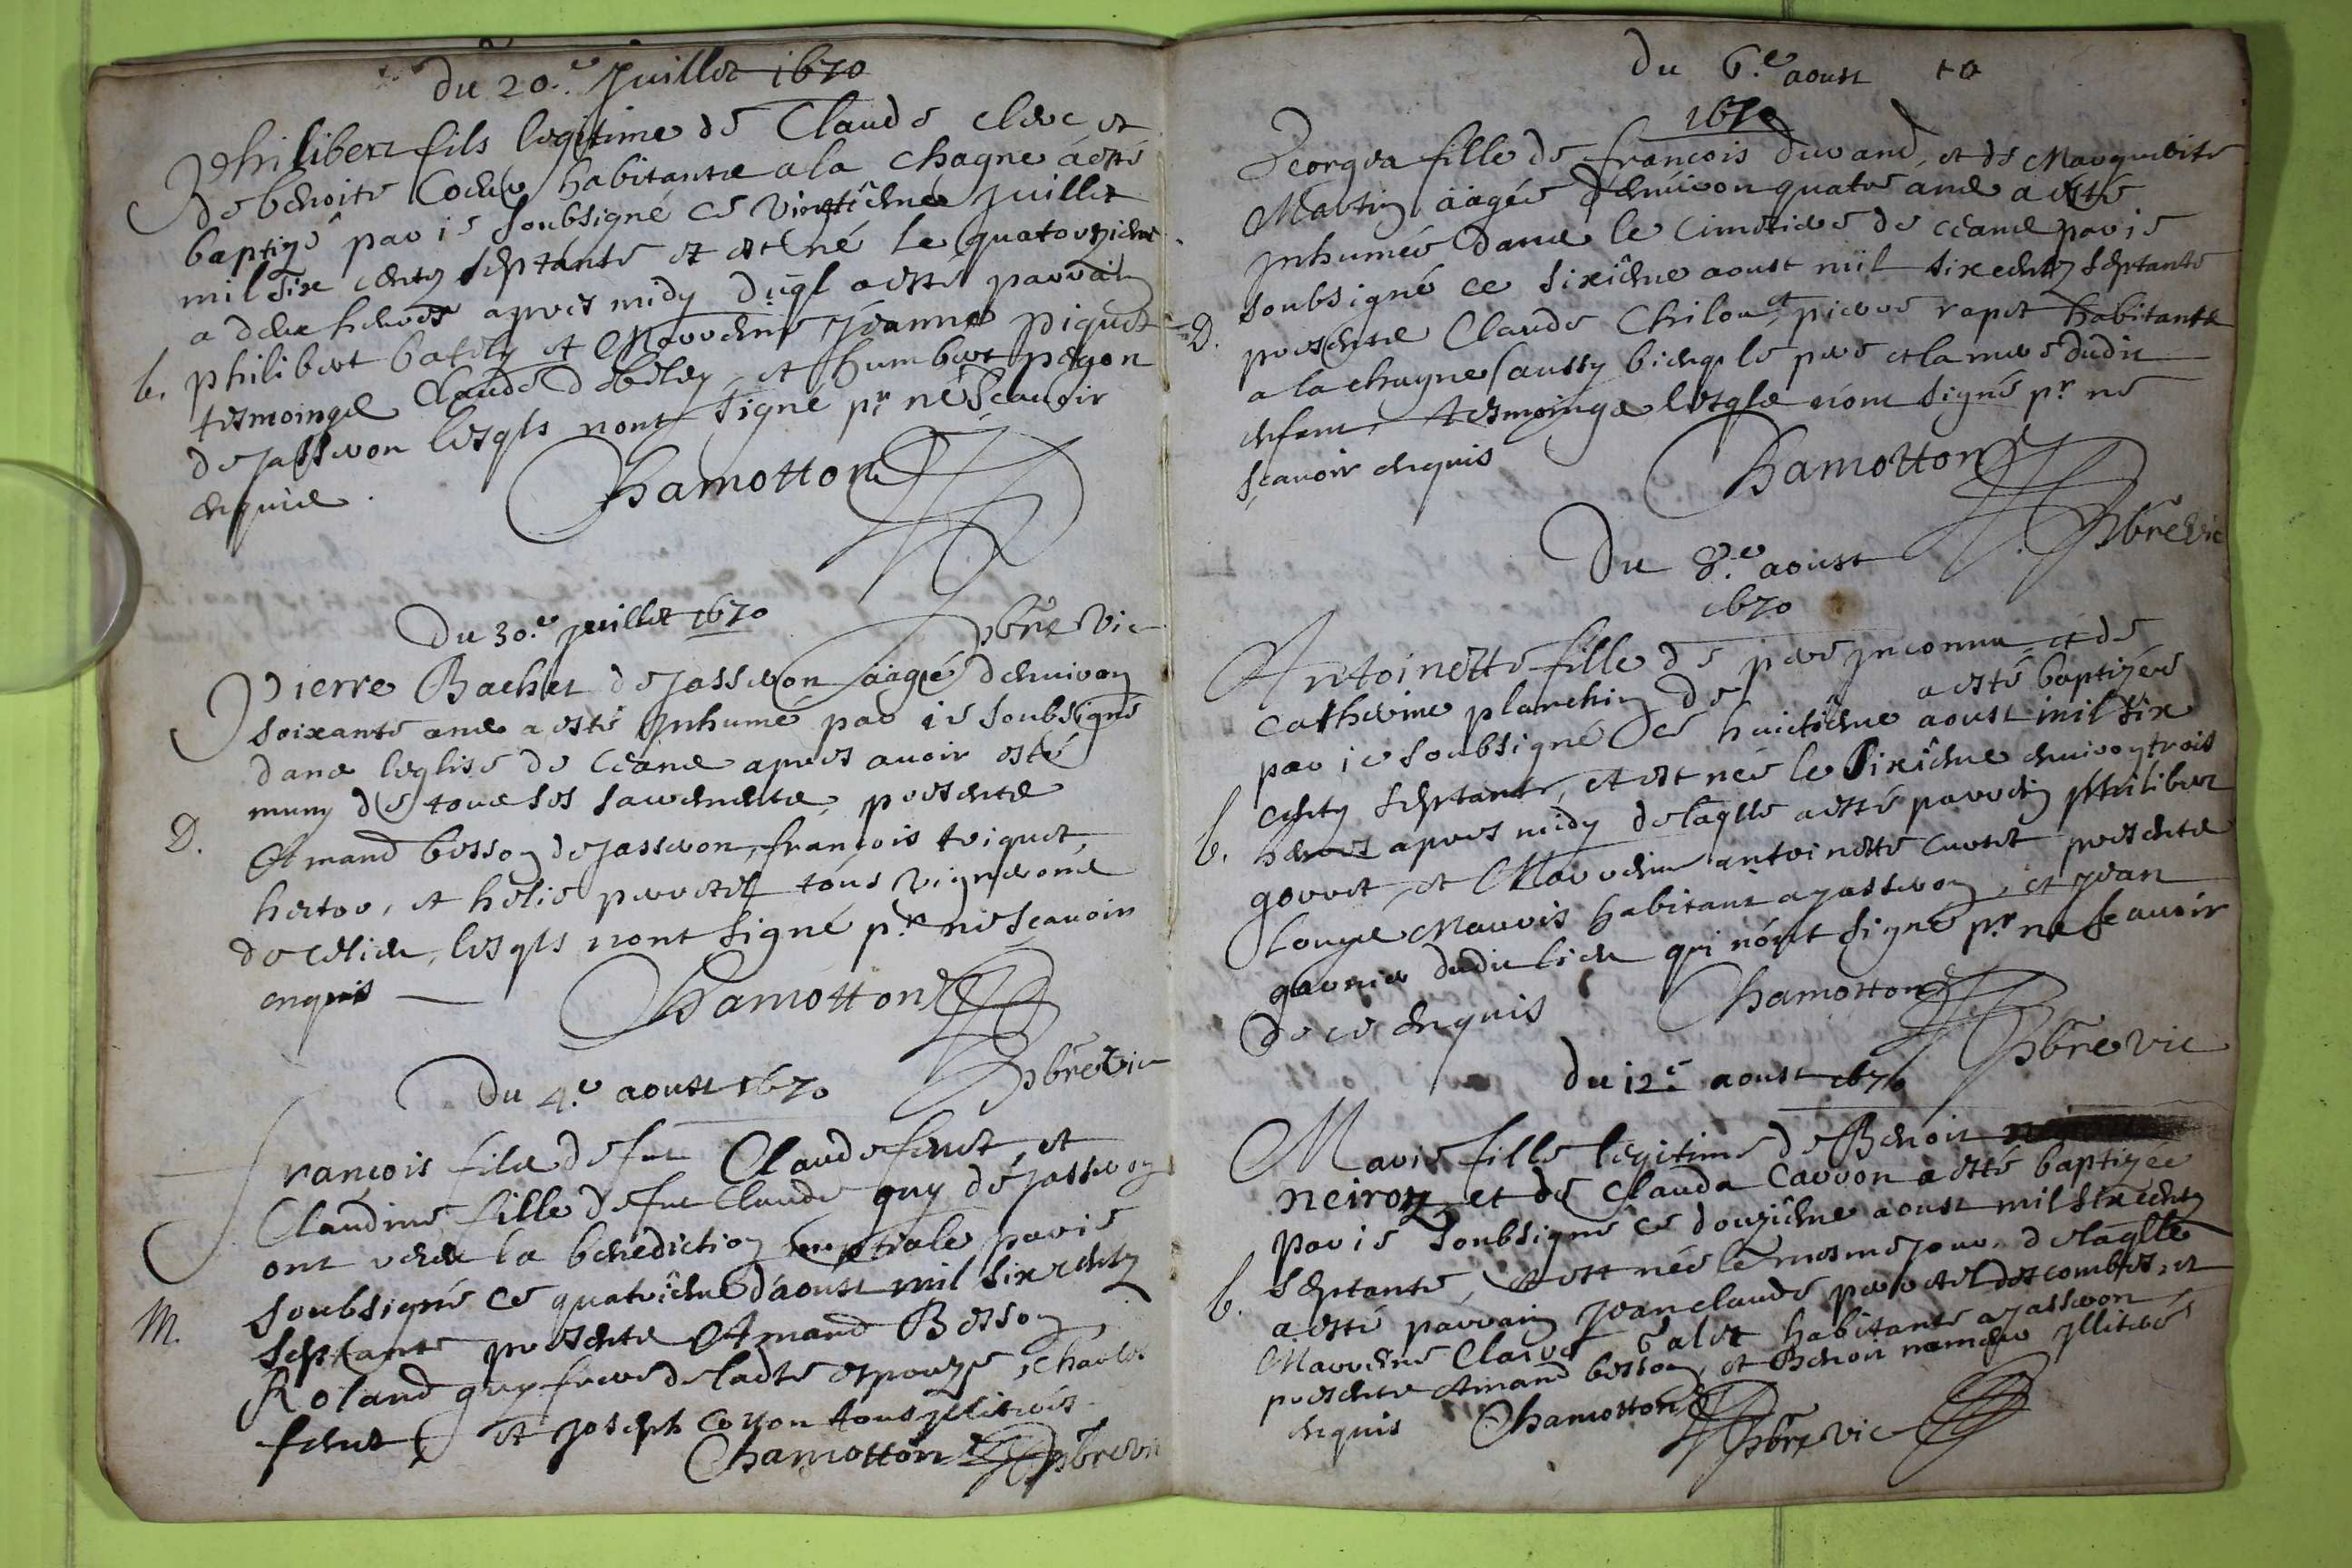 du 20.e Juillet 1670
Philibert fils legitime de Claude clerc et
de benoite Coeur habitants a la chagne a esté
baptizé par ie soubsigné ce vingtieme juillet
mil six cents septante et est né le quatorzieme
a deux heures apres midy duql a esté parrain
b. philibert bathily et Marrene Jeanne piquet
tesmoings Claude et humbert pegon
de Jasseron lesqls nont signé pr. ne scauoir
enquis.
Chamotton
pbre vic
Du 30.e juillet 1670
Pierre Bachet de Jasseron aagé denuiron
soixante ans a esté Inhumé par ie soubsigné
dans leglise de ceans apres auoir esté
muny de tous ses sacrements, presents
D. Amand besson de Jasseron, françois triquet,
hector, et helie perretel tous vignerons
de ce lieu, lesqls nont signé pr. ne sçauoir
enquis
Chamotton
pbre vic
Du 4.e aoust 1670
françois fils de feu Claude feuet, et
Claudine fille de feu Claude guy de Jasseron
ont receu la benediction nuptiale par ie
soubsigné ce quatrieme d'aoust mil six cents
M. septante presents Amand Besson
Roland guy frere de ladte espouze, Charles
feuet, et Joseph Coyon tous illiterés
Chamotton pbre vic
Du 6.e aoust
1670
Georgea fille de françois durand, et de Marguerite
Martin aagée denuiron quatre ans a esté
inhumée dans le cimetiere de ceans par ie
soubsigné ce sixieme aoust mil six cents septante
D. presents Claude Chilouet, pierre rapet habitants
a la chagne aussy bien q. le pere et la mere dudit
enfant, tesmoings lesqls nont signé pr. ne
sçauoir enquis
Chamotton
pbre vic
Du 8.e aoust
1670
Antoinette fille de pere inconnu, et de
Catherine planchin de a esté baptizée
par ie soubsigné ce huictieme aoust mil six
cents septante, et est née le sixieme enuiron trois
b. heures apres midy de laqlle a esté parrein philibert
gorret, et Marrene antoinette curtet presents
Louys Mauris habitant a Jasseron, et Jean
garnier dudit lieu qui nont signé pr. ne scauoir
de ce enquis
Chamotton
pbre vic
du 12.e aoust 1670
Marie fille legitime de Benoit
neiron et de Clauda Carron a esté baptizée
par ie soubsigné ce douzieme aoust mil six cents
septante, et est née le mesme jour, de laqlle
b. a esté parrain Jean claude perretel descombes, et
Marrene Claire Galet habitants a Jasseron
presents Amand besson, et Benoit illiterés
enquis Chamotton
pbre vic